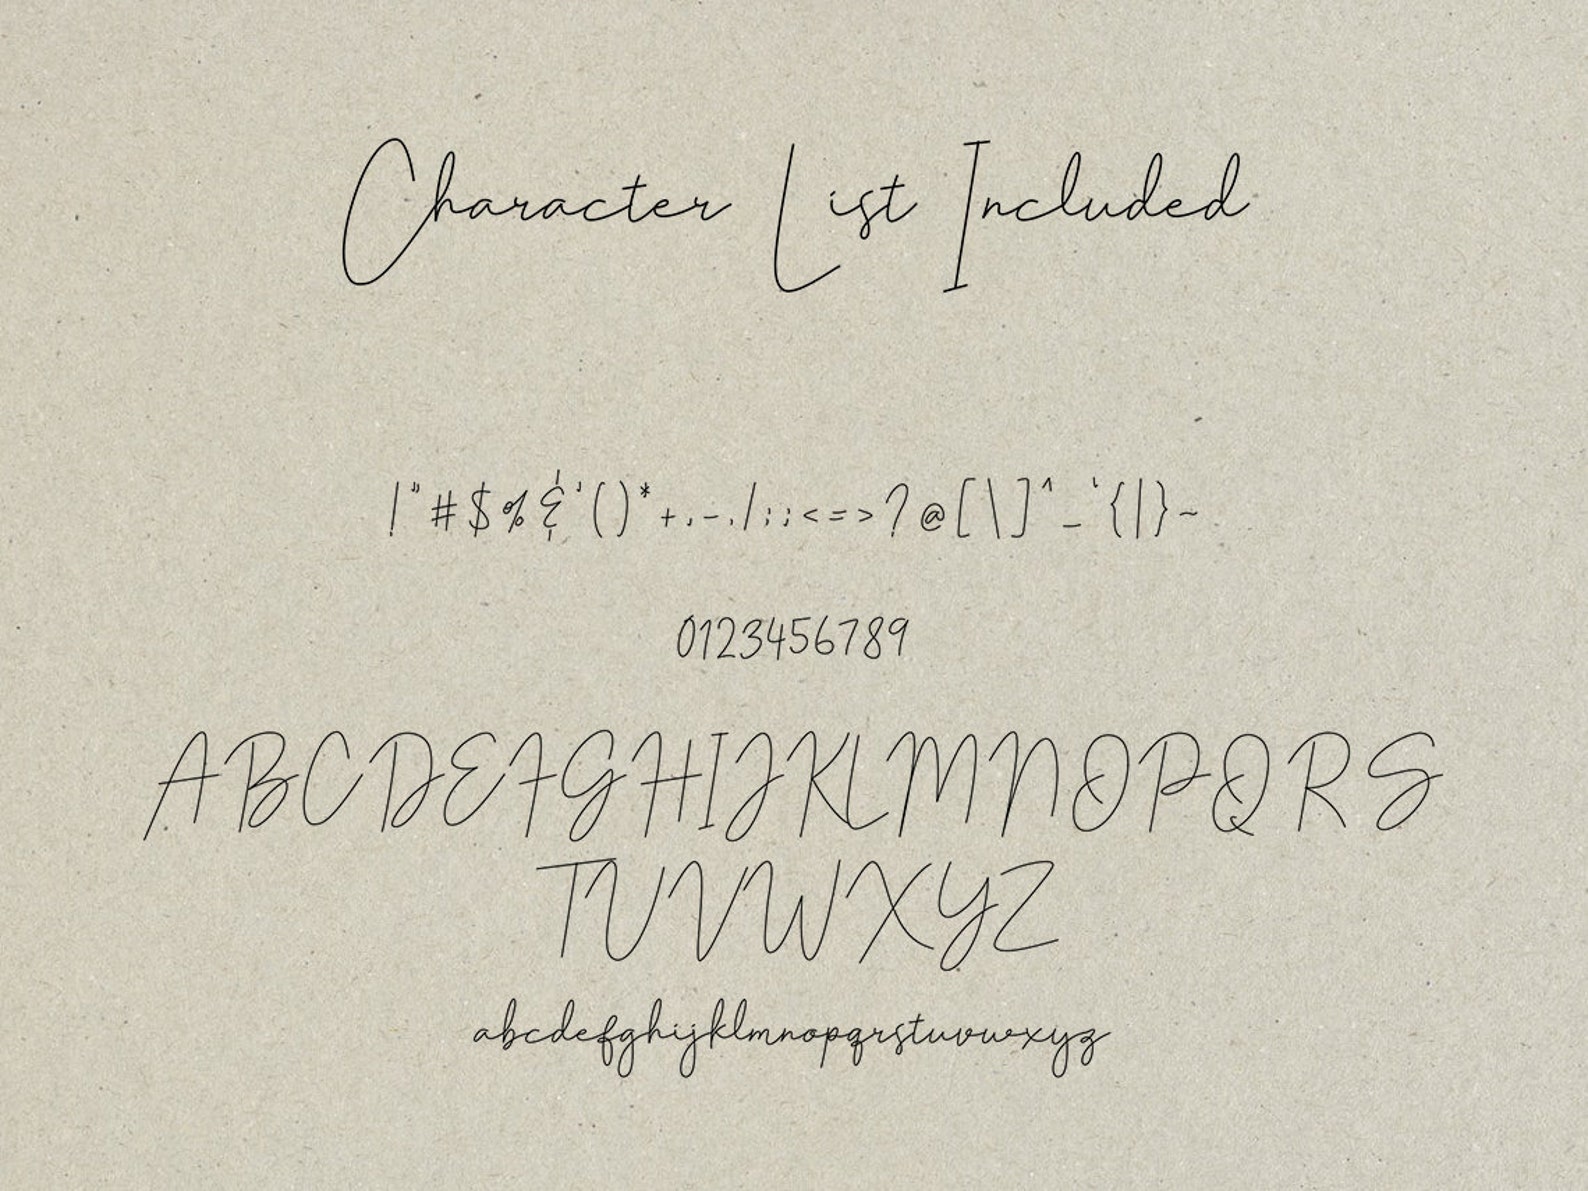 Character List Included
!"#$%&'()*+,-./:;<=>?@[\]^_`{|}~
0123456789
ABCDEFGHIJKLMNOPQRS
TUVWXYZ
abcdefghijklmnopqrstuvwxyz